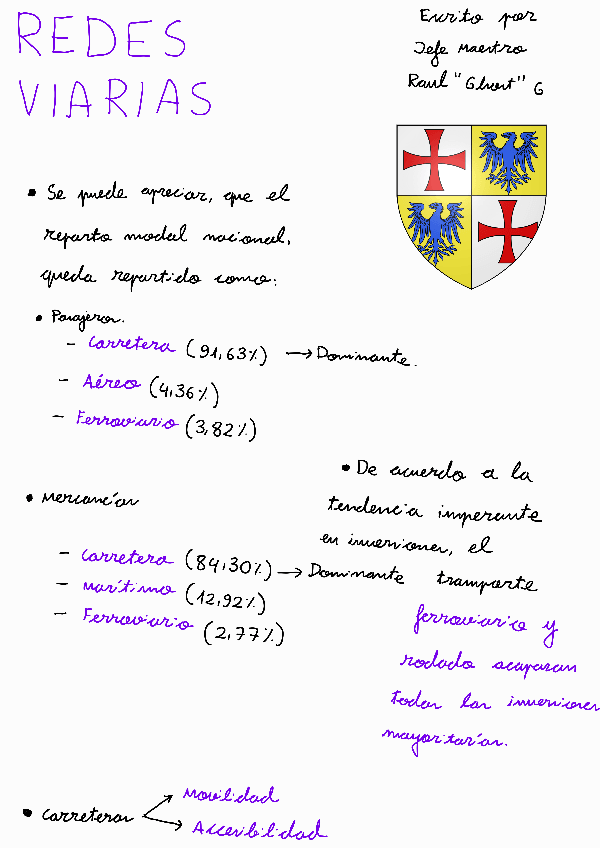 REDES
VIARIAS
Escrito por
Jefe Maestro
Raul "Ghost" G
• Se puede apreciar, que el
reparto modal nacional,
queda repartido como:
• Pasajeros.
- Carretera (91,63%) → Dominante.
- Aéreo (4,36%)
- Ferroviario (3,82%)
• Mercancías
- Carretera (84,30%) → Dominante
- Marítimo (12,92%)
- Ferroviario (2,77%)
• De acuerdo a la
tendencia imperante
en inversiones, el
transporte
ferroviario y
rodado acaparan
todas las inversiones
mayoritarias.
• Carreteras
Movilidad
Accesibilidad